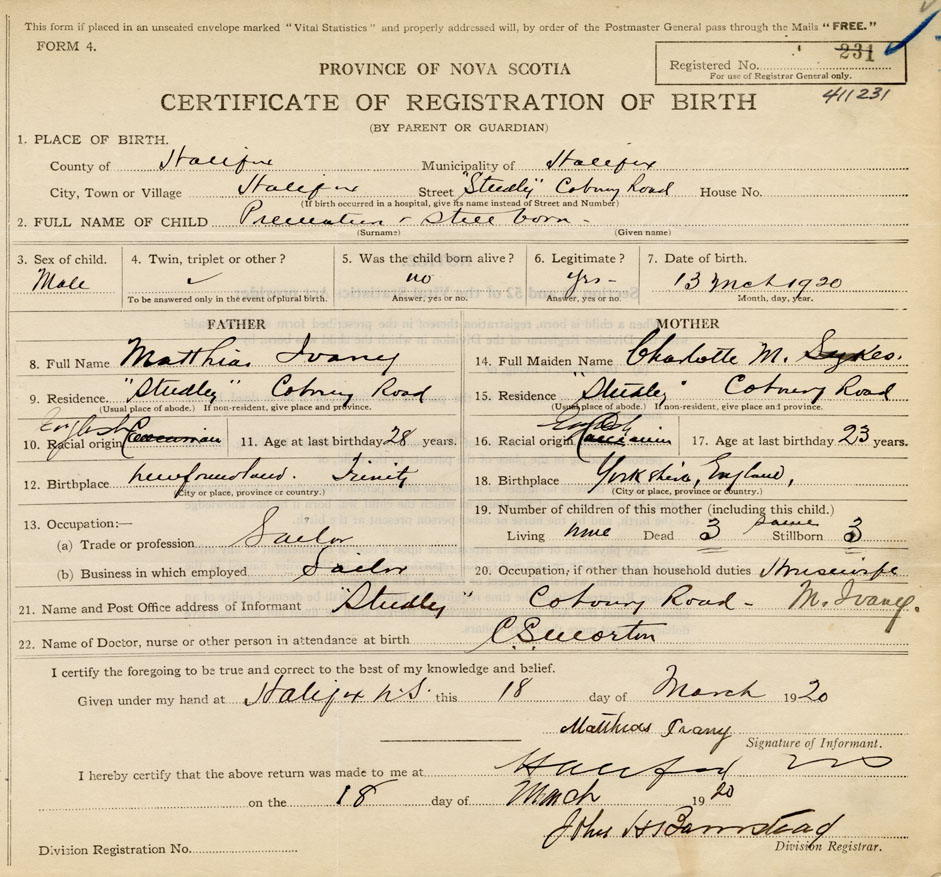 This form if placed in an unsealed envelope marked "Vital Statistics" and properly addressed will, by order of the Postmaster General pass through the Mails "FREE."
FORM 4.
Registered No. 231
For use of Registrar General only.
411231
PROVINCE OF NOVA SCOTIA
CERTIFICATE OF REGISTRATION OF BIRTH
(BY PARENT OR GUARDIAN)
1. PLACE OF BIRTH.
County of Halifax Municipality of Halifax
City, Town or Village Halifax Street "Studley" Coburg Road House No.
(If birth occurred in a hospital, give its name instead of Street and Number)
2. FULL NAME OF CHILD Premature & still born -
(Surname) (Given name)
3. Sex of child. 4. Twin, triplet or other? 5. Was the child born alive? 6. Legitimate? 7. Date of birth.
Male no Yes- 13 Mch 1920
To be answered only in the event of plural birth. Answer, yes or no. Answer, yes or no. Month, day, year.
FATHER MOTHER
8. Full Name Matthias Ivany 14. Full Maiden Name Charlotte M. Sykes.
9. Residence. "Studley" Coburg Road 15. Residence "Studley" Coburg Road
(Usual place of abode.) If non-resident, give place and province. (Usual place of abode.) If non-resident, give place and province.
10. Racial origin English 11. Age at last birthday 28 years. 16. Racial origin English 17. Age at last birthday 23 years.
12. Birthplace Newfoundland. Trinity 18. Birthplace Yorkshire, England,
(City or place, province or country.) (City or place, province or country.)
13. Occupation:— 19. Number of children of this mother (including this child.)
(a) Trade or profession Sailor Living none Dead 3 same Stillborn 3
(b) Business in which employed Sailor 20. Occupation, if other than household duties Housewife
21. Name and Post Office address of Informant "Studley" Coburg Road - M. Ivany.
22. Name of Doctor, nurse or other person in attendance at birth C.S. Morton
I certify the foregoing to be true and correct to the best of my knowledge and belief.
Given under my hand at Halifax N.S. this 18 day of March 1920
Matthias Ivany
Signature of Informant.
I hereby certify that the above return was made to me at Halifax NS
on the 18 day of March 1920
John H Barnstead
Division Registrar.
Division Registration No.